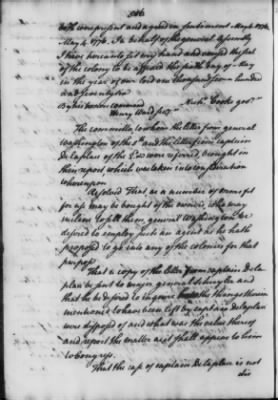 546
both were present and agreed in
May 4. 1776. In behalf of the general Assembly
I have hereunto set my hand and caused the seal
of the colony to be affixed this sixth day of May
in the year of our Lord one thousand seven hundred
and seventy six
By his honors command Nich.s Cooke gov.r
Henry Ward sec.y
The committee to whom the letter from general
Washington of the 5th and the letter from captain
delaplace of the were referred, brought in
their report which was taken into consideration
whereupon
Resolved That as a number of arms fit
for use may be bought of the owners, who may
incline to sell them, general Washington be
desired to employ such an agent as he hath
proposed to go into any of the colonies for that
purpose
That a copy of the letter from captain dela
plan be sent to major general Schuyler and
that he be desired to inquire how the things therein
mentioned to have been left by captain delaplan
were disposed of and what was the value thereof
and report the matter as it shall appear to him
to congress.
That the case of captain delaplan is not